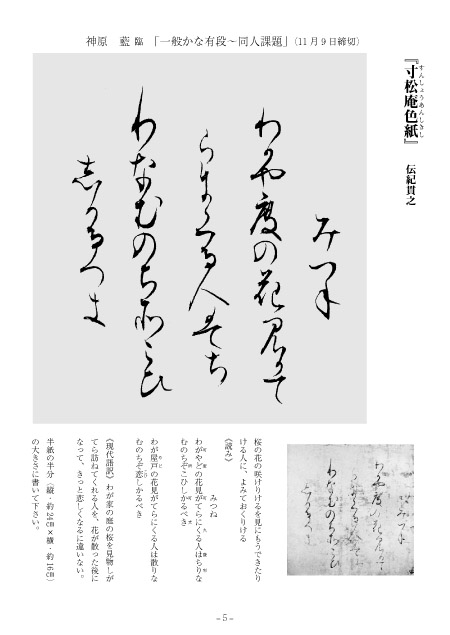 神原　藍 臨 「一般かな有段～同人課題」（11月9日締切）
『寸松庵色紙』 伝紀貫之
すんしょうあんしきし
みつね
わがやどの花みがて
らにくる人はち
りなむのちぞこひ
しかるべき
桜の花の咲けりけるを見にもうできたり
ける人に、よみておくりける
《読み》
みつね
わがやどの花見がてらにくる人はちりな
むのちぞこひしかるべき
わが屋戸の花見がてらにくる人は散りな
むのちぞ恋しかるべき
《現代語訳》わが家の庭の桜を見物しが
てら訪ねてくれる人を、花が散った後に
なって、きっと恋しくなるに違いない。
半紙の半分（縦・約24㎝×横・約16㎝）
の大きさに書いて下さい。
– 5 –